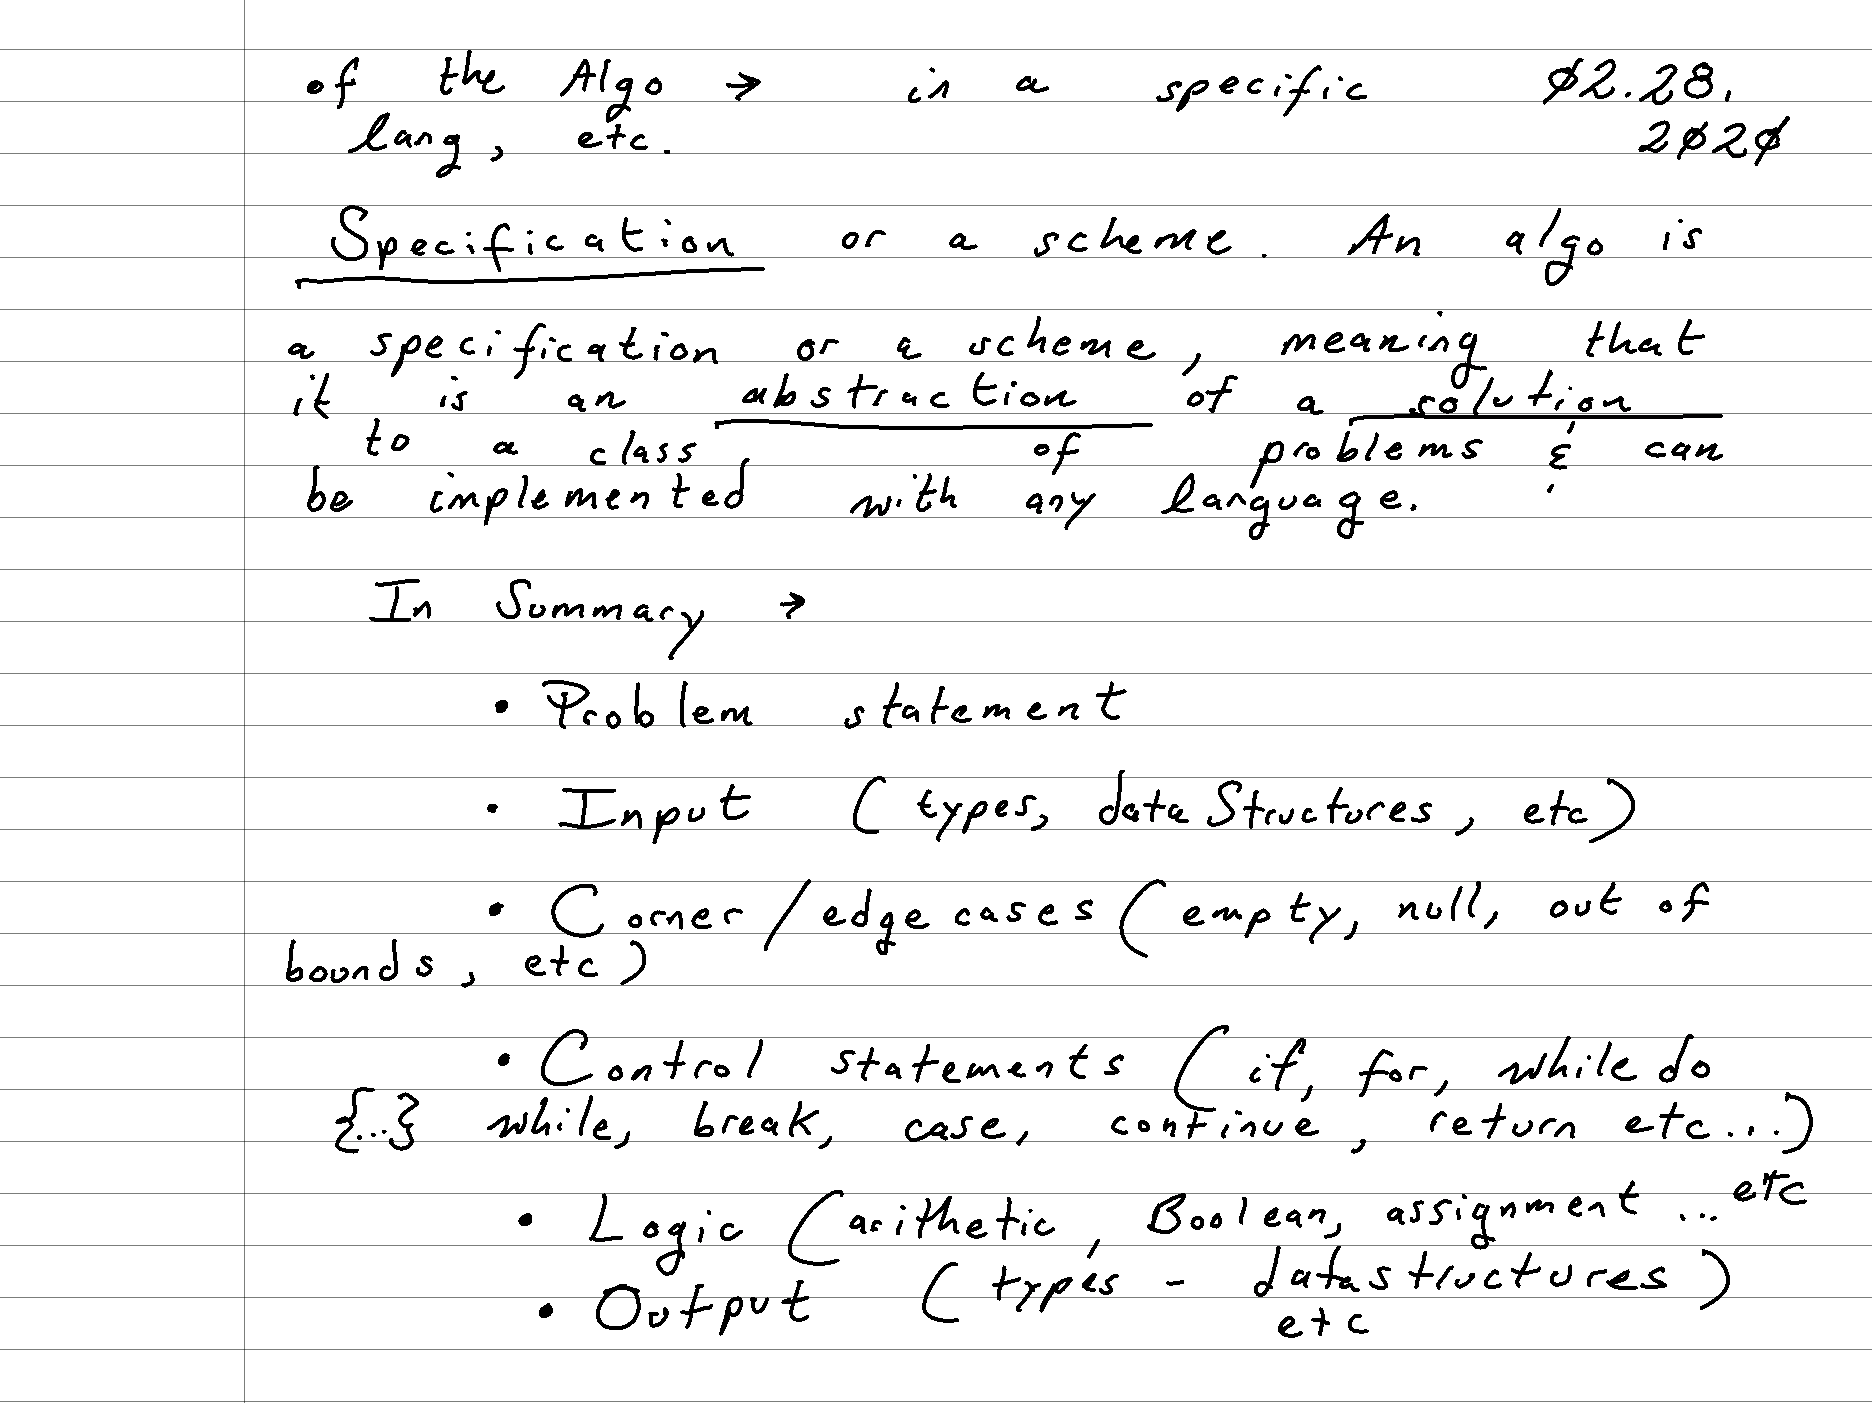 of the Algo → in a specific Ø2.28.
lang, etc. 2Ø2Ø
Specification or a scheme. An algo is
a specification or a scheme, meaning that
it is an abstraction of a solution
to a class of problems & can
be implemented with any language.
In Summary →
• Problem statement
• Input (types, dataStructures, etc)
• Corner/edge cases (empty, null, out of
bounds, etc)
• Control statements (if, for, while do
{...} while, break, case, continue, return etc...)
• Logic (arithetic, Boolean, assignment ... etc
• Output (types - datastructures)
etc